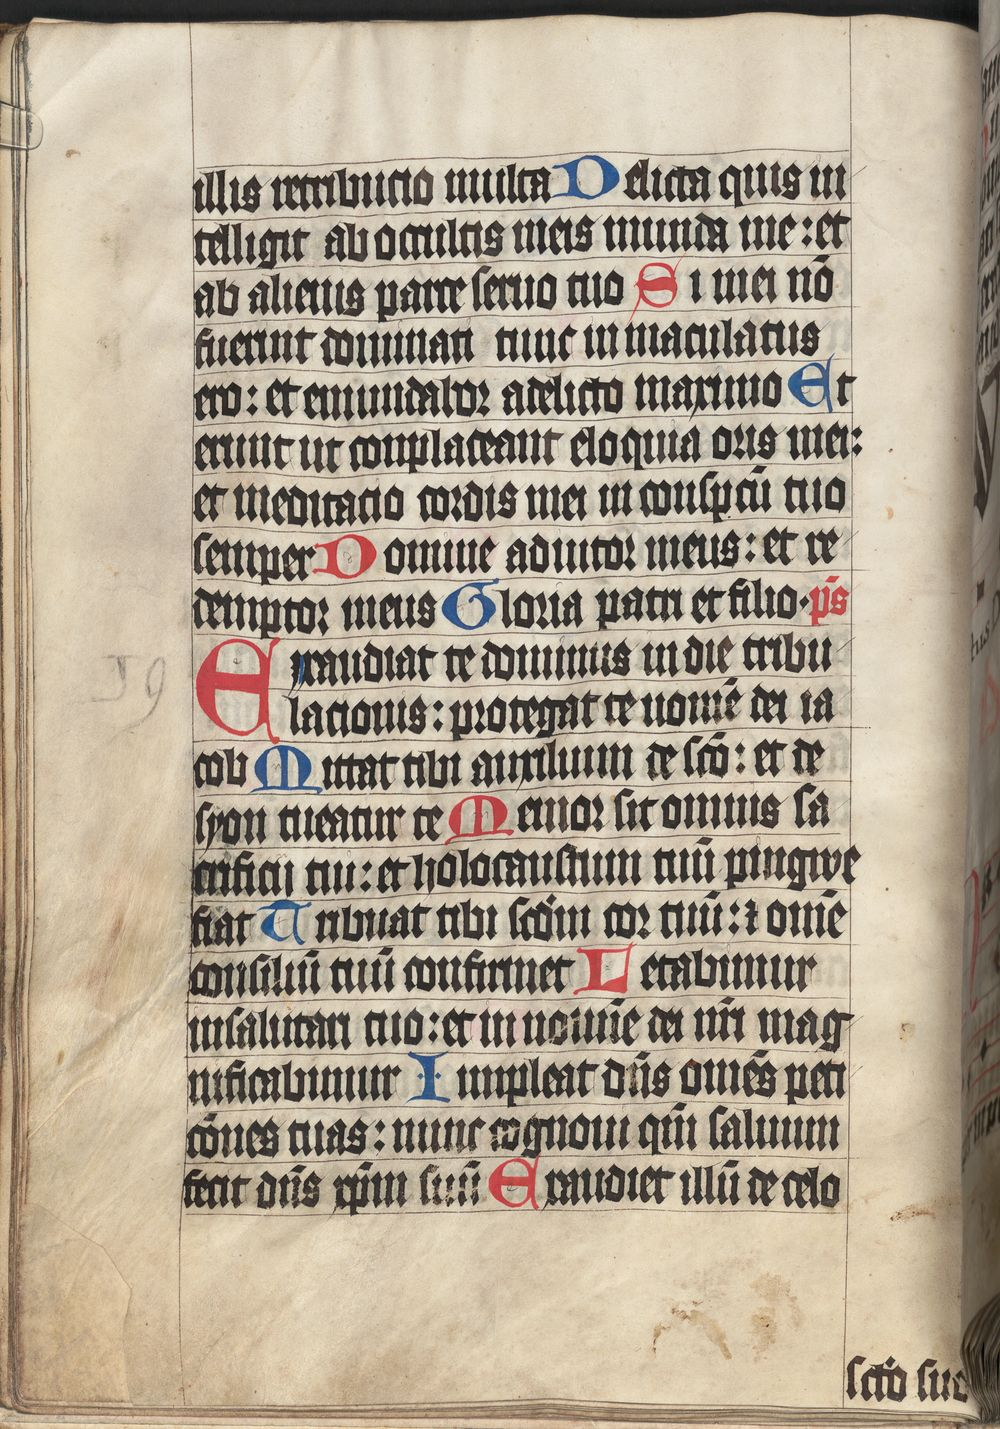 illis retribucio multa Delicta quis in
telligit ab occultis meis munda me : et
ab alienis parce seruo tuo Si mei nō
fuerint dominati tunc in maculatus
ero : et emundabor a delicto maximo Et
erunt ut complaceant eloquia oris mei :
et meditacio cordis mei in conspcū tuo
semper Domine adiutor meus : et re
demptor meus Gloria patri et filio · p̄s
Exaudiat te dominus in die tribu
lacionis : protegat te nomē dei ia
cob Mittat tibi auxilium de scō : et de
syon tueatur te Memor sit omnis sa
crificij tui : et holocaustum tuū pingwe
fiat Tribuat tibi scdm cor tuū : ⁊ omē
consiliū tuū confirmet Letabimur
in salutari tuo : et in nomīe dei nr̄i mag
nificabimur Impleat dn̄s omēs peti
cōnes tuas : nunc cognoui qm̄ saluum
fecit dn̄s xp̄m suū Exaudiet illū de celo
scto suo
19